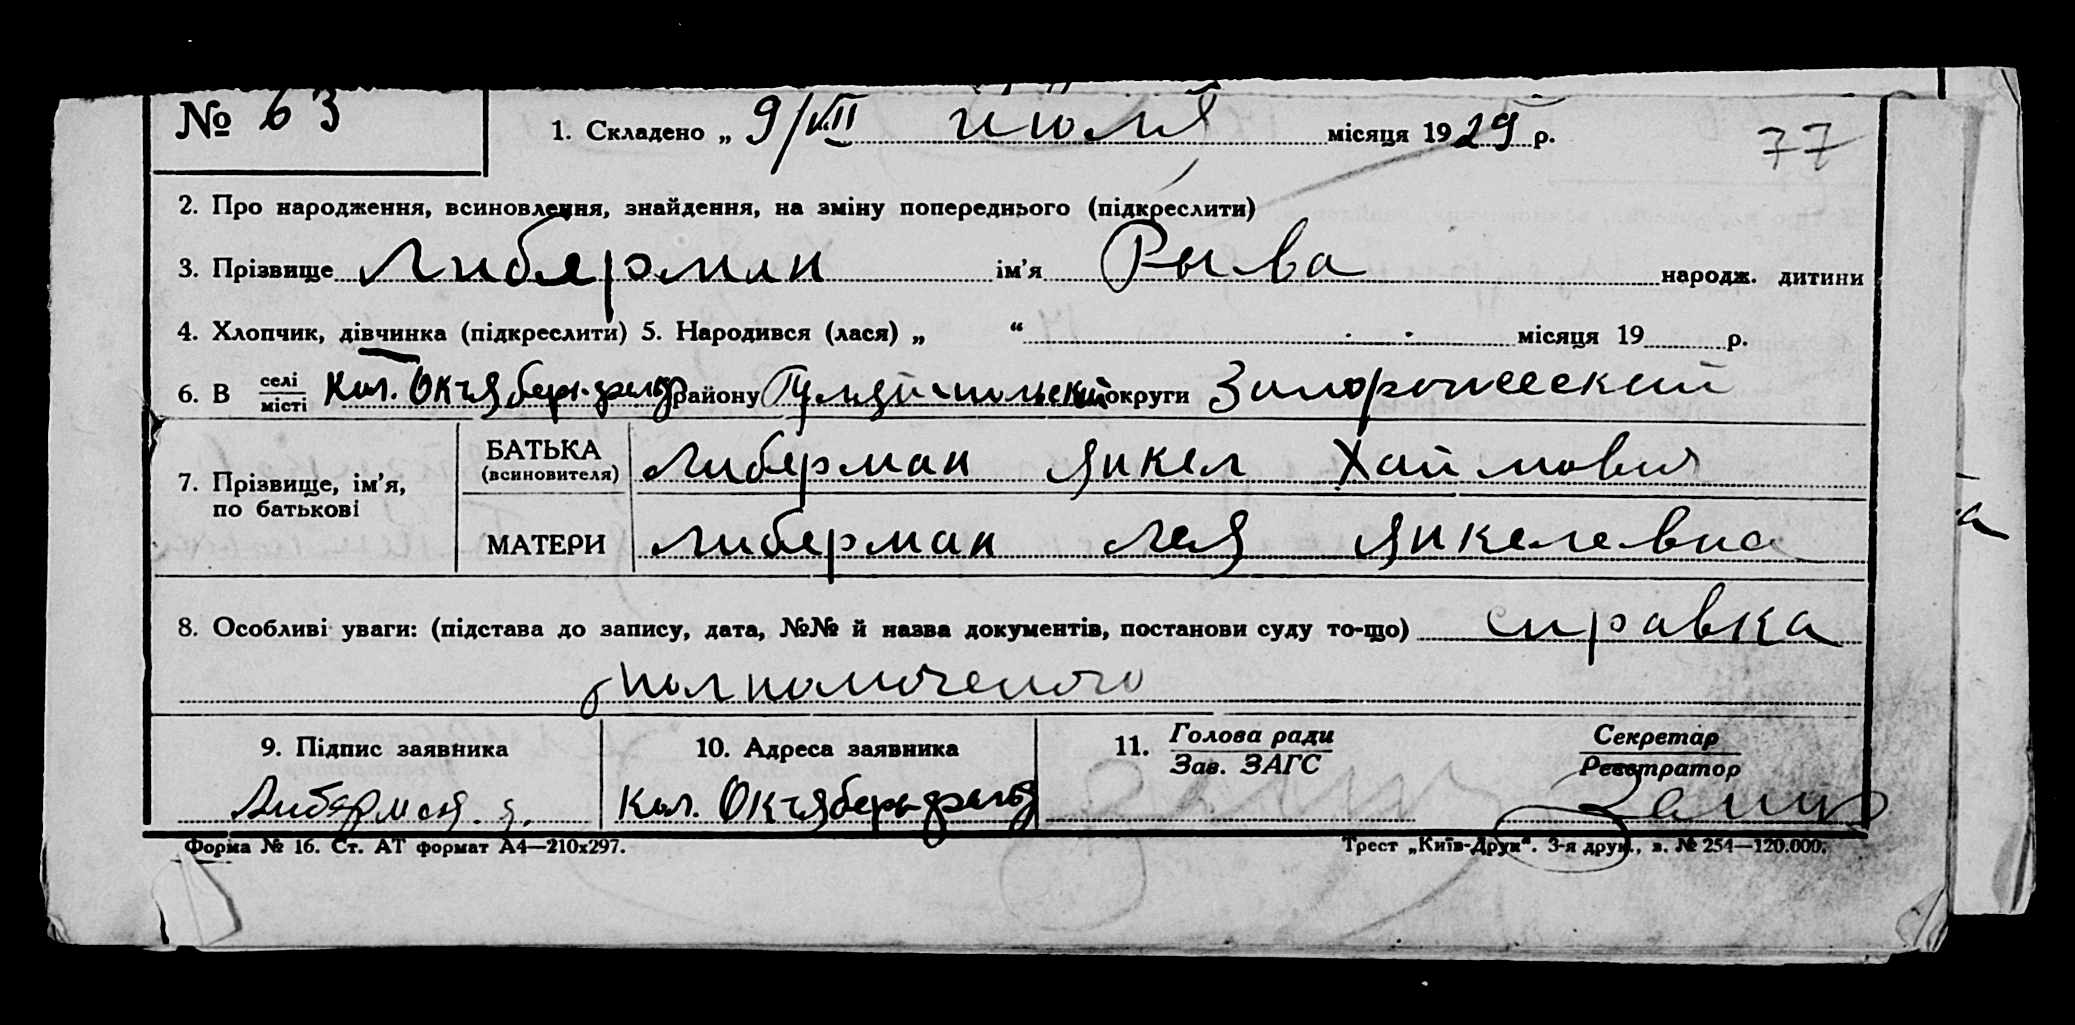 № 63
1. Складено „ 9/VII июля місяця 1929 р.
77
2. Про народження, всиновлення, знайдення, на зміну попереднього (підкреслити)
3. Прізвище Либерман ім'я Рыва народж. дитини
4. Хлопчик, дівчинка (підкреслити) 5. Народився (лася) „ “ місяця 19 р.
6. В селі / місті Кол. Октяберфельд району Гуляйпольский округи Запорожеский
7. Прізвище, ім'я, по батькові
БАТЬКА (всиновителя) Либерман Янкел Хаймович
МАТЕРИ Либерман Лея Янкелевна
8. Особливі уваги: (підстава до запису, дата, №№ й назва документів, постанови суду то-що) справка
уполномоченого
9. Підпис заявника
10. Адреса заявника
11. Голова ради / Зав. ЗАГС
Секретар / Реєстратор
Либерман Я.
Кол. Октяберфельд
Форма № 16. Ст. АТ формат А4—210х297.
Трест „Київ-Друк“. 3-я друк., з. № 254—120.000.